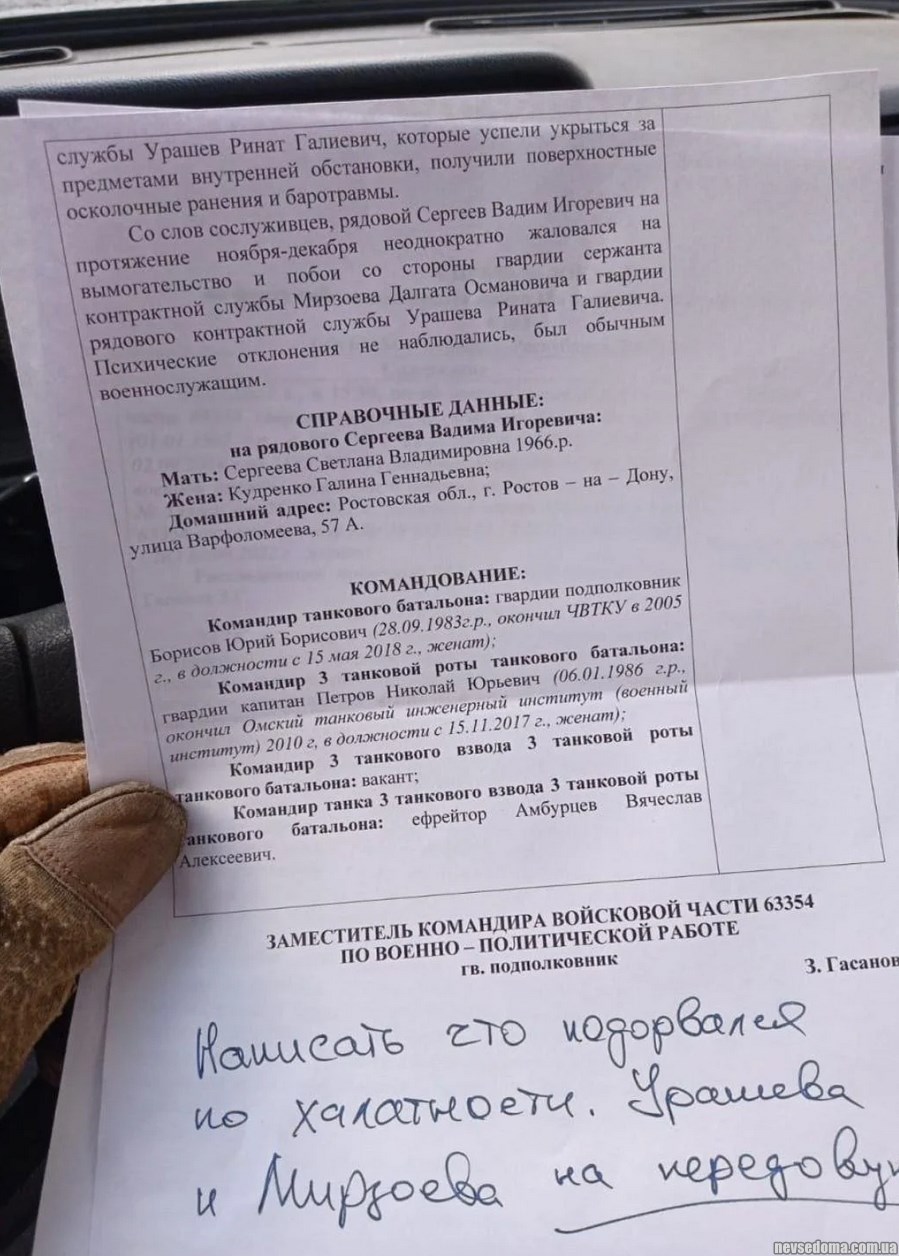 службы Урашев Ринат Галиевич, которые успели укрыться за
предметами внутренней обстановки, получили поверхностные
осколочные ранения и баротравмы.
Со слов сослуживцев, рядовой Сергеев Вадим Игоревич на
протяжение ноября-декабря неоднократно жаловался на
вымогательство и побои со стороны гвардии сержанта
контрактной службы Мирзоева Далгата Османовича и гвардии
рядового контрактной службы Урашева Рината Галиевича.
Психические отклонения не наблюдались, был обычным
военнослужащим.
СПРАВОЧНЫЕ ДАННЫЕ:
на рядового Сергеева Вадима Игоревича:
Мать: Сергеева Светлана Владимировна 1966.р.
Жена: Кудренко Галина Геннадьевна;
Домашний адрес: Ростовская обл., г. Ростов – на – Дону,
улица Варфоломеева, 57 А.
КОМАНДОВАНИЕ:
Командир танкового батальона: гвардии подполковник
Борисов Юрий Борисович (28.09.1983г.р., окончил ЧВТКУ в 2005
г., в должности с 15 мая 2018 г., женат);
Командир 3 танковой роты танкового батальона:
гвардии капитан Петров Николай Юрьевич (06.01.1986 г.р.,
окончил Омский танковый инженерный институт (военный
институт) 2010 г, в должности с 15.11.2017 г., женат);
Командир 3 танкового взвода 3 танковой роты
танкового батальона: вакант;
Командир танка 3 танкового взвода 3 танковой роты
танкового батальона: ефрейтор Амбурцев Вячеслав
Алексеевич.
ЗАМЕСТИТЕЛЬ КОМАНДИРА ВОЙСКОВОЙ ЧАСТИ 63354
ПО ВОЕННО – ПОЛИТИЧЕСКОЙ РАБОТЕ
гв. подполковник
З. Гасанов
Написать что подорвался
по халатности. Урашева
и Мирзоева на передовую
nevsedoma.com.ua